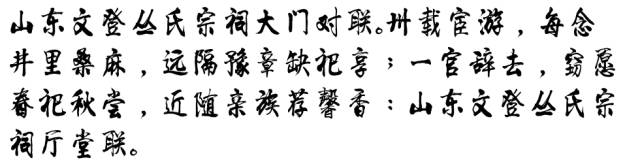 山东文登丛氏宗祠大门对联。卅载宦游，每念
井里桑麻，远隔豫章缺祀享；一官辞去，窃愿
春祀秋尝，近随亲族荐馨香：山东文登丛氏宗
祠厅堂联。